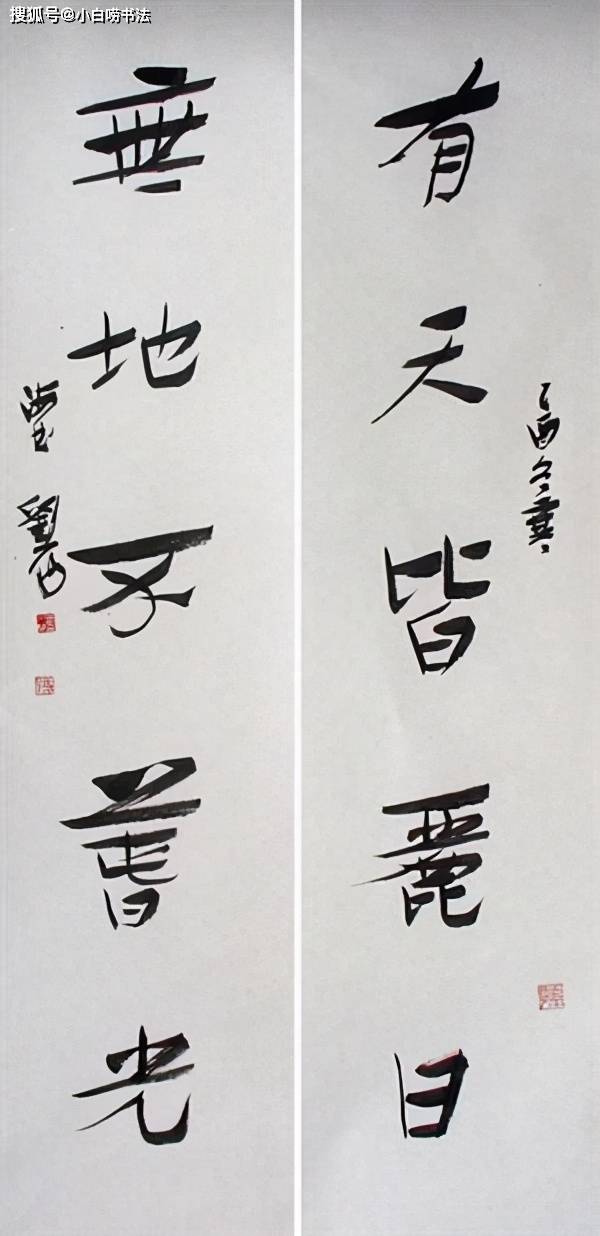 搜狐号@小白唠书法
有天皆麗日
乙酉冬寒
無地不萅光